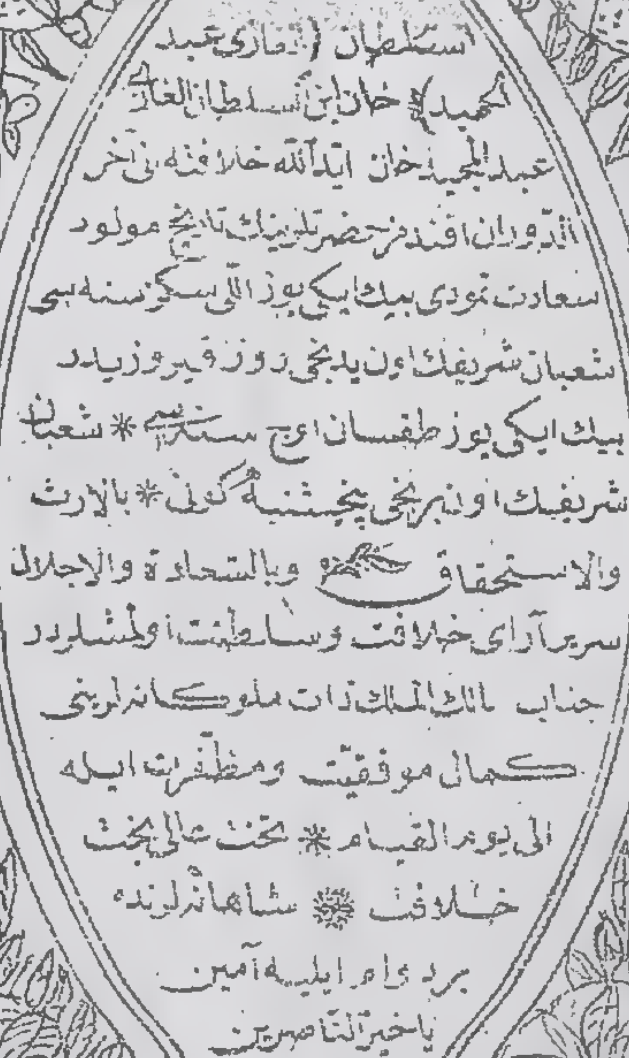 السلطان الغازى عبد
الحميد خان ابن السلطان الغازى
عبد المجيد خان ايد الله خلافته الى آخر
الدوران افندمز حضرتلرينك تاريخ مولود
سعادت نمودى بيك ايكى يوز اللى سكز سنه سى
شعبان شريفك اون يدنجى روز فيروزيدر
بيك ايكى يوز طقسان اوچ سنه سى * شعبان
شريفك اون برنجى پنجشنبه كونى * بالارث
والاستحقاق وبالسعادة والاجلال
سرير آراى خلافت وسلطنت اولمشلردر
جناب مالك الملك ذات ملوكانه لرينى
كمال موفقيت ومظفريت ايله
الى يوم القيام * تخت عالى بخت
خلافت * شاهانه لرنده
بر دوام ايليه آمين
يا خير الناصرين